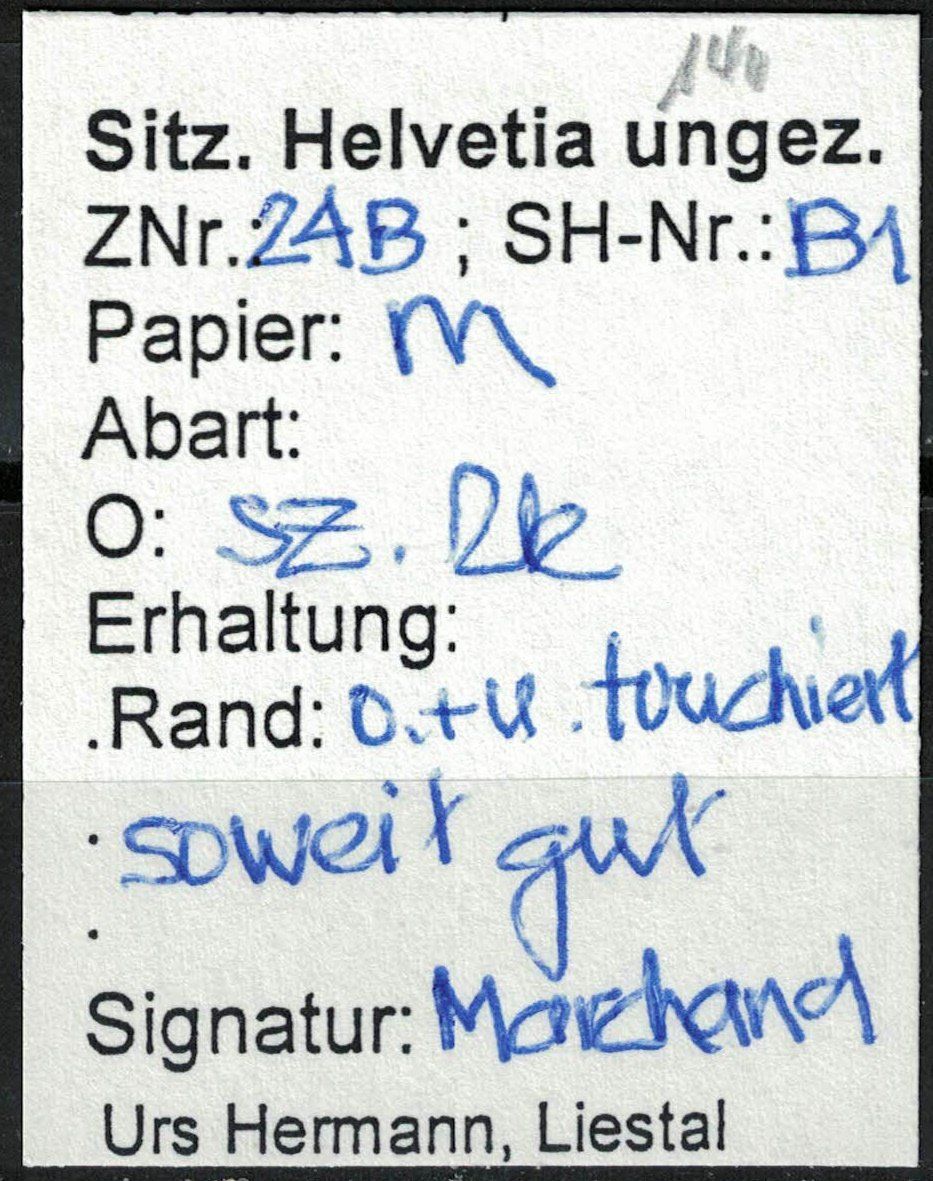 140
Sitz. Helvetia ungez.
ZNr.: 24B ; SH-Nr.: B1
Papier: m
Abart:
O: sz. Rk
Erhaltung:
.Rand: o.+u. touchiert
. soweit gut
.
Signatur: Marchand
Urs Hermann, Liestal